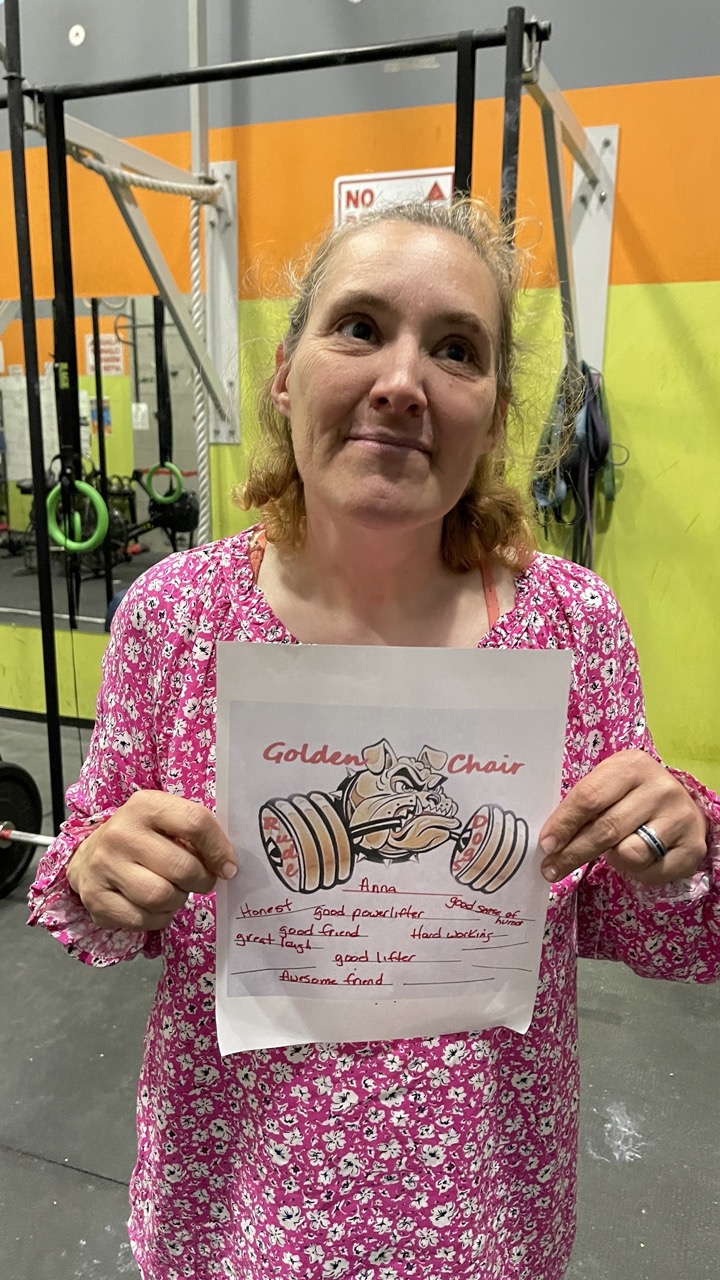 NO
Golden Chair
Rude Dog
Anna
Honest good powerlifter good sense of humor
good friend Hard working
great laugh
good lifter
Awesome friend